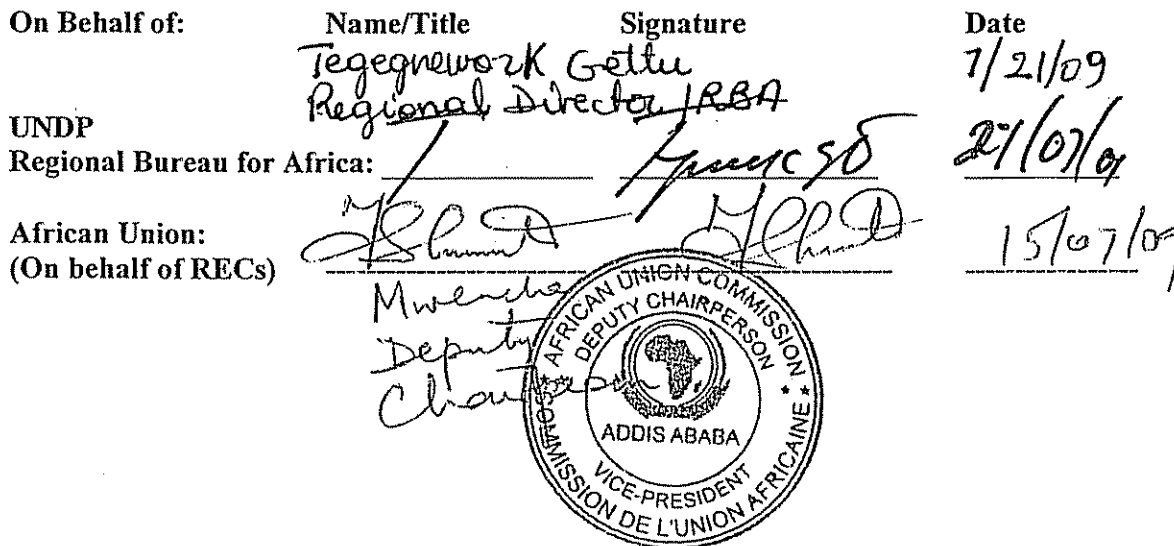 On Behalf of: Name/Title Signature Date
Tegegnework Gettu 7/21/09
Regional Director, RBA
UNDP
Regional Bureau for Africa: 21/07/09
African Union: 15/07/09
(On behalf of RECs)
Mwencha
Deputy
Chairperson
AFRICAN UNION COMMISSION
DEPUTY CHAIRPERSON
ADDIS ABABA
VICE-PRESIDENT
COMMISSION DE L'UNION AFRICAINE